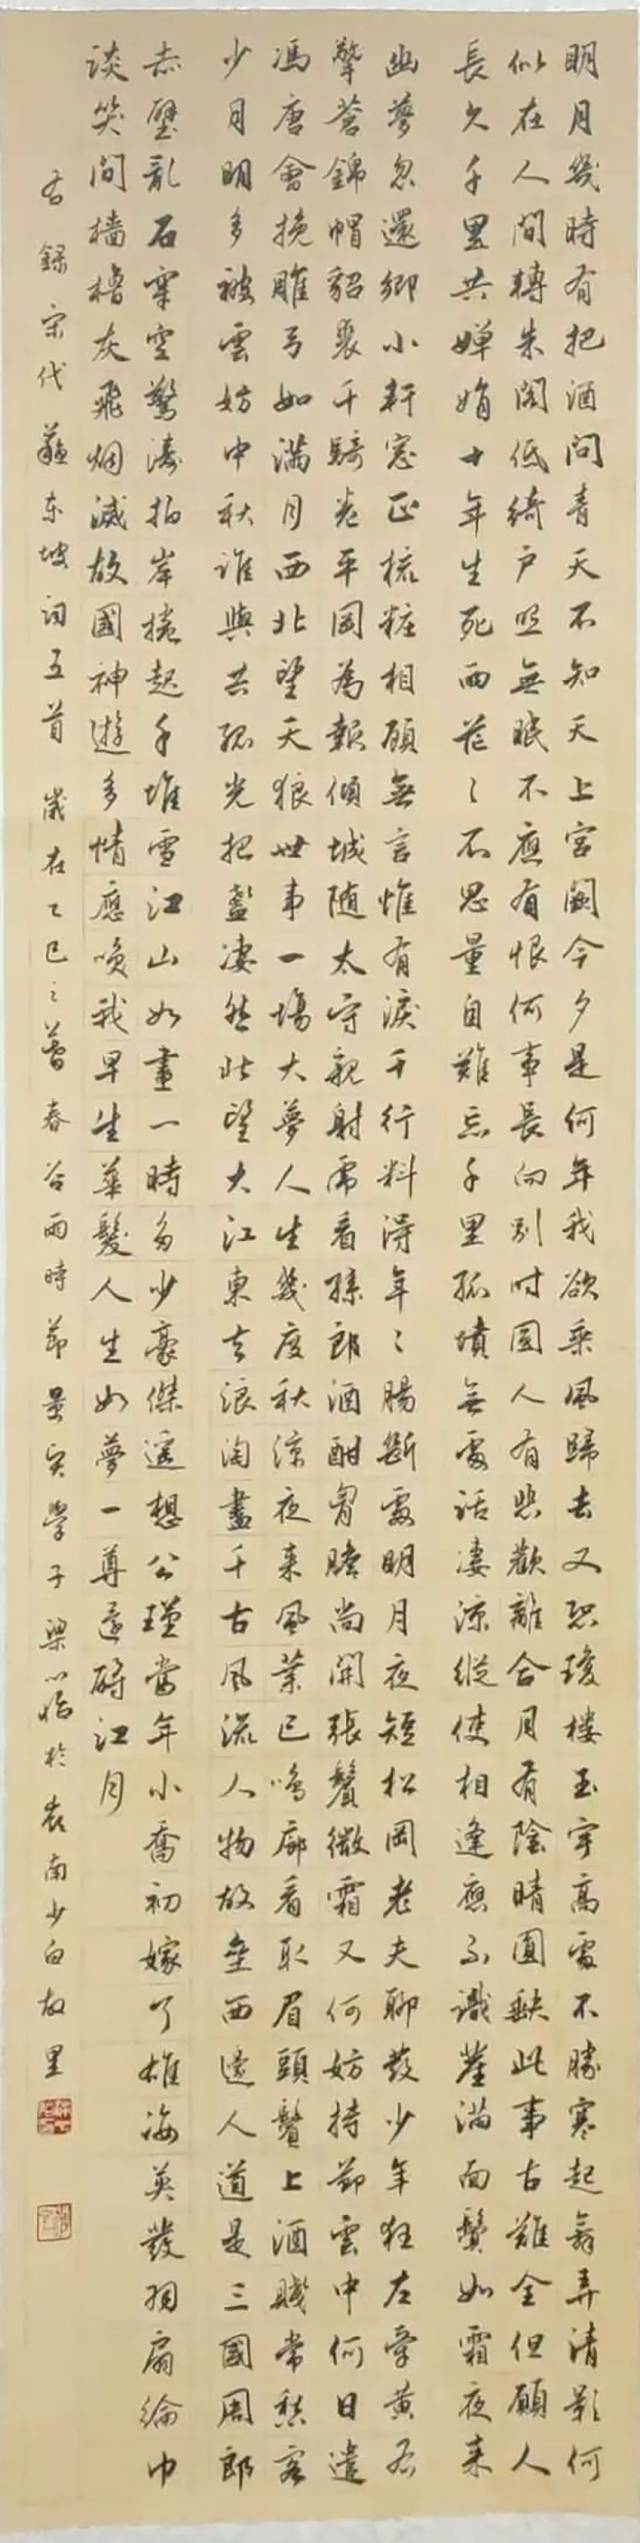 明月幾時有把酒問青天不知天上宮闕今夕是何年我欲乘風歸去又恐瓊樓玉宇高處不勝寒起舞弄清影何
似在人間轉朱閣低綺戶照無眠不應有恨何事長向別時圓人有悲歡離合月有陰晴圓缺此事古難全但願人
長久千里共嬋娟十年生死兩茫〻不思量自難忘千里孤墳無處話凄涼縱使相逢應不識塵滿面鬢如霜夜來
幽夢忽還鄉小軒窗正梳妝相顧無言惟有淚千行料得年〻腸斷處明月夜短松岡老夫聊發少年狂左牽黃右
擎蒼錦帽貂裘千騎卷平岡為報傾城隨太守親射虎看孫郎酒酣胸膽尚開張鬢微霜又何妨持節雲中何日遣
馮唐會挽雕弓如滿月西北望天狼世事一場大夢人生幾度秋涼夜來風葉已鳴廊看取眉頭鬢上酒賤常愁客
少月明多被雲妨中秋誰與共孤光把盞凄然北望大江東去浪淘盡千古風流人物故壘西邊人道是三國周郎
赤壁亂石穿空驚濤拍岸捲起千堆雪江山如畫一時多少豪傑遙想公瑾當年小喬初嫁了雄姿英發羽扇綸巾
談笑間檣櫓灰飛烟滅故國神遊多情應笑我早生華髮人生如夢一尊還酹江月
右錄宋代蘇東坡詞五首 歲在乙巳之暮春谷雨時節 學子梁 於 南少白故里